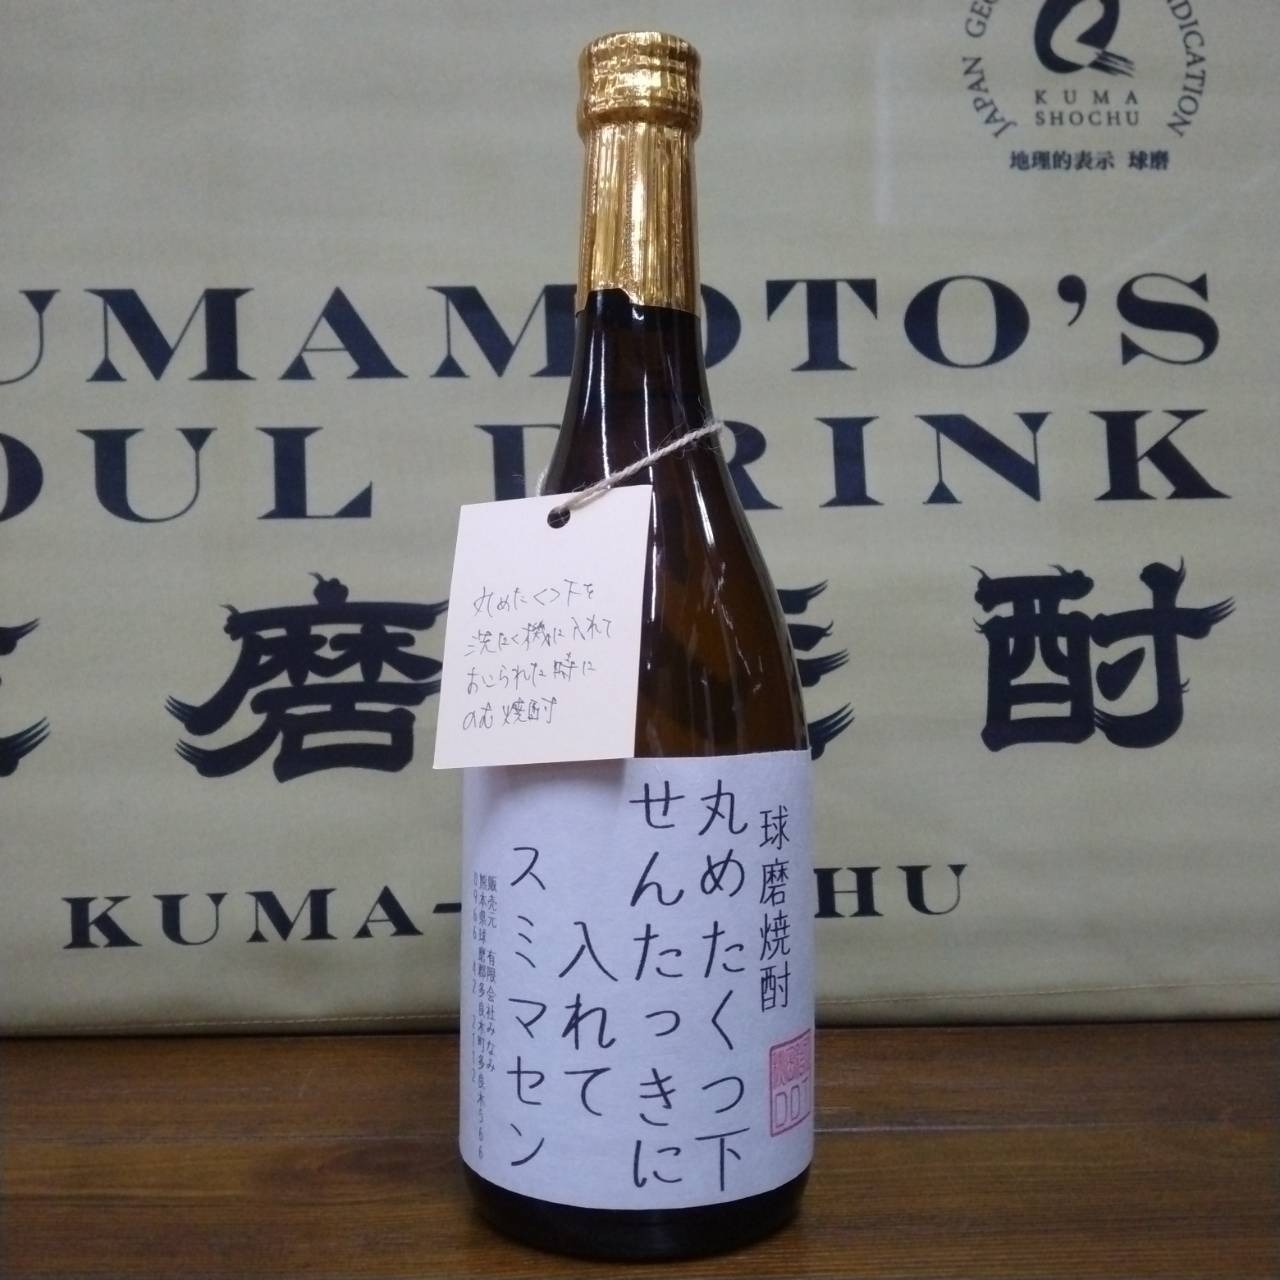 JAPAN GEO
DICATION
KUMA
SHOCHU
地理的表示 球磨
UMAMOTO'S
OUL DRINK
磨 酎
KUMA- HU
丸めたくつ下を
洗たく機に入れて
おこられた時に
のむ焼酎
球磨焼酎
丸めたくつ下
せんたっきに
入れて
スミマセン
販売元 有限会社みなみ
熊本県球磨郡多良木町多良木566
0966 42 2112